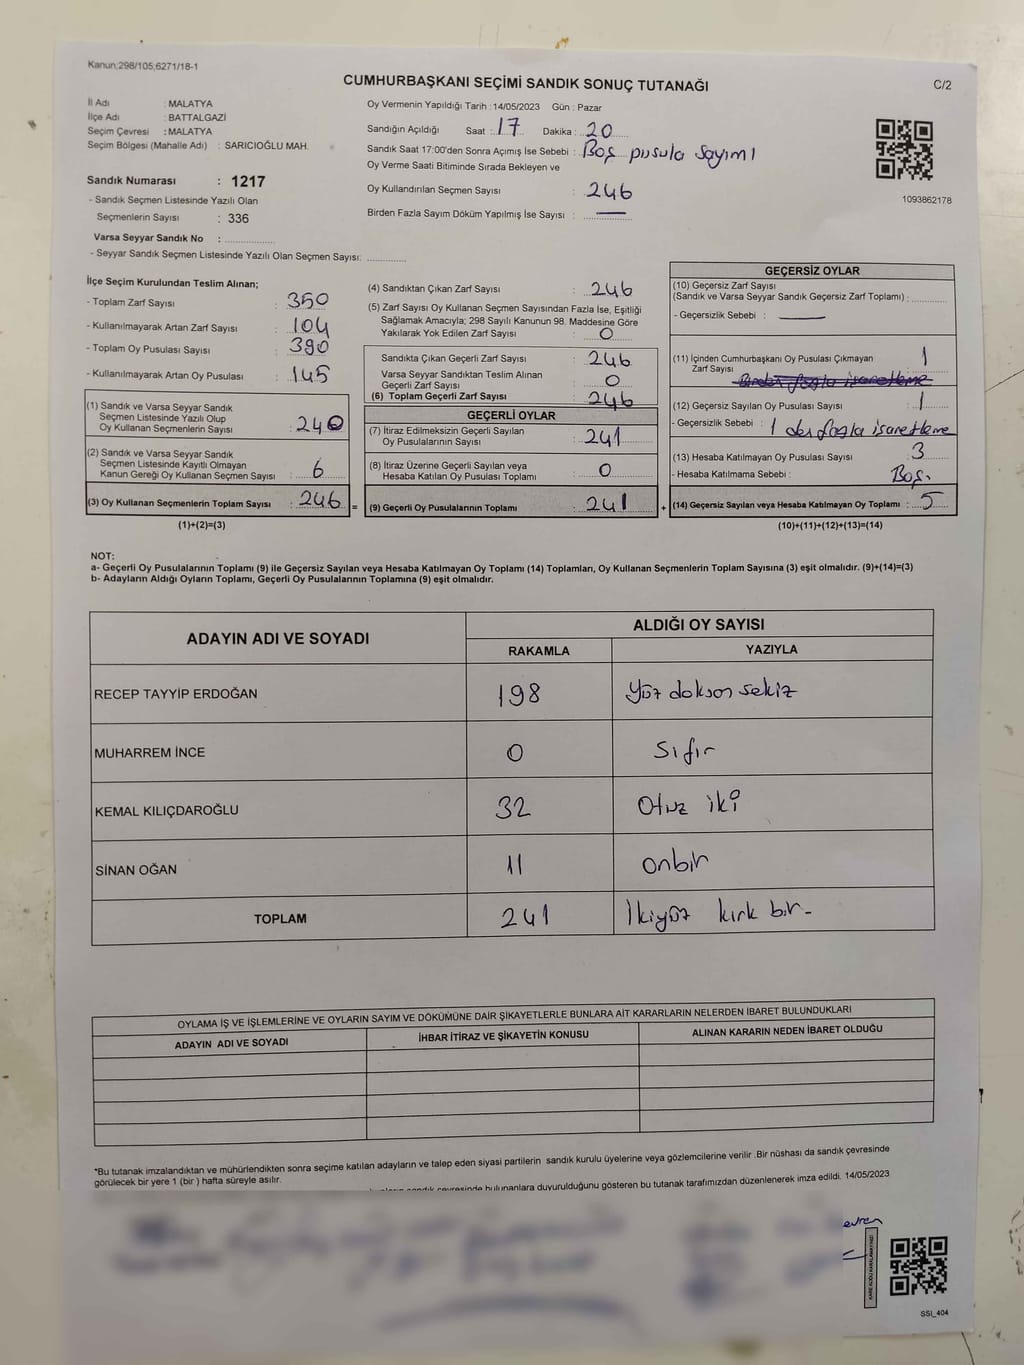 Kanun;298/105,6271/18-1
CUMHURBAŞKANI SEÇİMİ SANDIK SONUÇ TUTANAĞI
C/2
İl Adı : MALATYA
İlçe Adı : BATTALGAZİ
Seçim Çevresi : MALATYA
Seçim Bölgesi (Mahalle Adı) : SARICIOĞLU MAH.
Sandık Numarası : 1217
- Sandık Seçmen Listesinde Yazılı Olan
Seçmenlerin Sayısı : 336
Varsa Seyyar Sandık No :
- Seyyar Sandık Seçmen Listesinde Yazılı Olan Seçmen Sayısı:
Oy Vermenin Yapıldığı Tarih :14/05/2023 Gün : Pazar
Sandığın Açıldığı Saat : 17 Dakika : 20
Sandık Saat 17:00'den Sonra Açımış İse Sebebi : Boş pusula sayımı
Oy Verme Saati Bitiminde Sırada Bekleyen ve
Oy Kullandırılan Seçmen Sayısı : 246
Birden Fazla Sayım Döküm Yapılmış İse Sayısı : —
1093862178
İlçe Seçim Kurulundan Teslim Alınan;
- Toplam Zarf Sayısı : 350
- Kullanılmayarak Artan Zarf Sayısı : 104
- Toplam Oy Pusulası Sayısı : 390
- Kullanılmayarak Artan Oy Pusulası : 145
(1) Sandık ve Varsa Seyyar Sandık
Seçmen Listesinde Yazılı Olup
Oy Kullanan Seçmenlerin Sayısı : 240
(2) Sandık ve Varsa Seyyar Sandık
Seçmen Listesinde Kayıtlı Olmayan
Kanun Gereği Oy Kullanan Seçmen Sayısı : 6
(3) Oy Kullanan Seçmenlerin Toplam Sayısı : 246 =
(1)+(2)=(3)
(4) Sandıktan Çıkan Zarf Sayısı : 246
(5) Zarf Sayısı Oy Kullanan Seçmen Sayısından Fazla İse, Eşitliği
Sağlamak Amacıyla; 298 Sayılı Kanunun 98. Maddesine Göre
Yakılarak Yok Edilen Zarf Sayısı : 0
Sandıkta Çıkan Geçerli Zarf Sayısı : 246
Varsa Seyyar Sandıktan Teslim Alınan
Geçerli Zarf Sayısı : 0
(6) Toplam Geçerli Zarf Sayısı : 246
GEÇERLİ OYLAR
(7) İtiraz Edilmeksizin Geçerli Sayılan
Oy Pusulalarının Sayısı : 241
(8) İtiraz Üzerine Geçerli Sayılan veya
Hesaba Katılan Oy Pusulası Toplamı : 0
(9) Geçerli Oy Pusulalarının Toplamı : 241 +
GEÇERSİZ OYLAR
(10) Geçersiz Zarf Sayısı
(Sandık ve Varsa Seyyar Sandık Geçersiz Zarf Toplamı) :
- Geçersizlik Sebebi : —
(11) İçinden Cumhurbaşkanı Oy Pusulası Çıkmayan
Zarf Sayısı : 1
(12) Geçersiz Sayılan Oy Pusulası Sayısı : 1
- Geçersizlik Sebebi : 1 den fazla isaretleme
(13) Hesaba Katılmayan Oy Pusulası Sayısı : 3
- Hesaba Katılmama Sebebi : Boş.
(14) Geçersiz Sayılan veya Hesaba Katılmayan Oy Toplamı : 5
(10)+(11)+(12)+(13)=(14)
NOT:
a- Geçerli Oy Pusulalarının Toplamı (9) ile Geçersiz Sayılan veya Hesaba Katılmayan Oy Toplamı (14) Toplamları, Oy Kullanan Seçmenlerin Toplam Sayısına (3) eşit olmalıdır. (9)+(14)=(3)
b- Adayların Aldığı Oyların Toplamı, Geçerli Oy Pusulalarının Toplamına (9) eşit olmalıdır.
ADAYIN ADI VE SOYADI
ALDIĞI OY SAYISI
RAKAMLA YAZIYLA
RECEP TAYYİP ERDOĞAN 198 Yüz dokson sekiz
MUHARREM İNCE 0 Sıfır
KEMAL KILIÇDAROĞLU 32 Otuz iki
SİNAN OĞAN 11 onbir
TOPLAM 241 İkiyüz kırk bir-
OYLAMA İŞ VE İŞLEMLERİNE VE OYLARIN SAYIM VE DÖKÜMÜNE DAİR ŞİKAYETLERLE BUNLARA AİT KARARLARIN NELERDEN İBARET BULUNDUKLARI
ADAYIN ADI VE SOYADI İHBAR İTİRAZ VE ŞİKAYETİN KONUSU ALINAN KARARIN NEDEN İBARET OLDUĞU
*Bu tutanak imzalandıktan ve mühürlendikten sonra seçime katılan adayların ve talep eden siyasi partilerin sandık kurulu üyelerine veya gözlemcilerine verilir .Bir nüshası da sandık çevresinde
görülecek bir yere 1 (bir ) hafta süreyle asılır.
sandık çevresinde bulunanlara duyurulduğunu gösteren bu tutanak tarafımızdan düzenlenerek imza edildi. 14/05/2023
evren
SSI_404